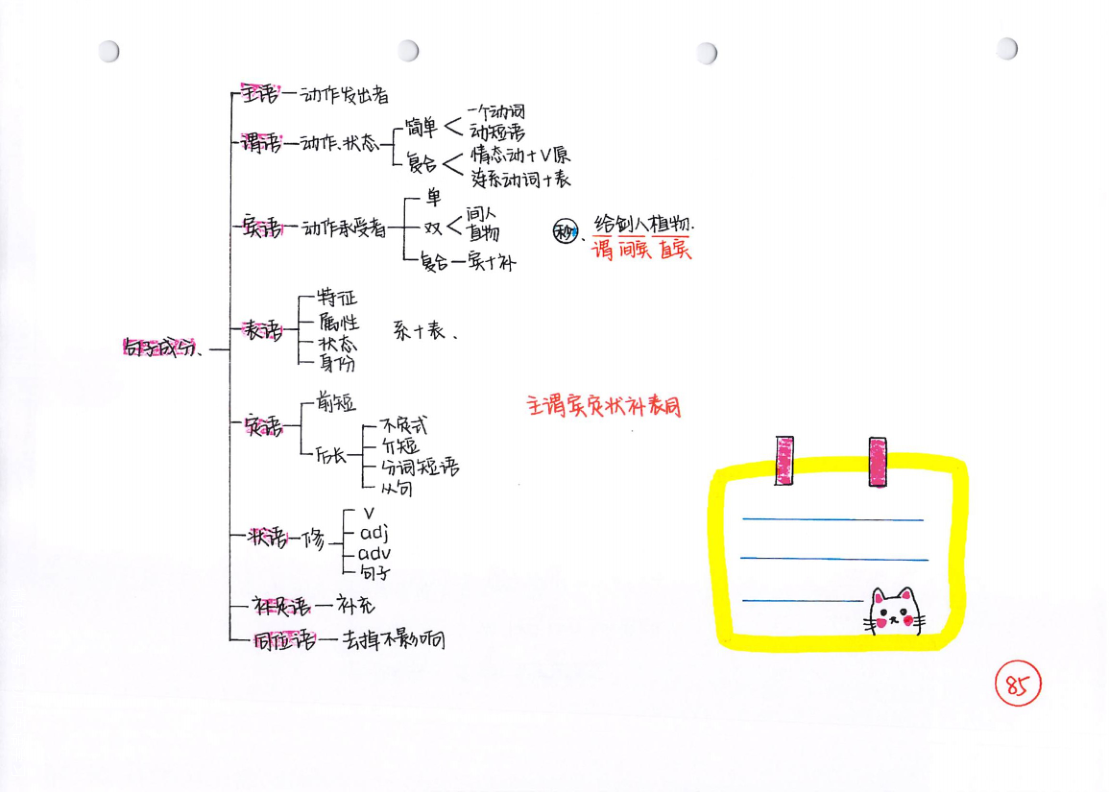 句子成分、
主语 — 动作发出者
谓语 — 动作、状态
简单
一个动词
动短语
复合
情态动+V原
连系动词+表
宾语 — 动作承受者
单
双
间人
直物
复合 — 宾+补
秒、给剑人植物.
谓 间宾 直宾
表语
特征
属性
状态
身份
系+表.
定语
前短
后长
不定式
介短
分词短语
从句
主谓宾定状补表同
状语 — 修
V
adj
adv
句子
补足语 — 补充
同位语 — 去掉不影响
85